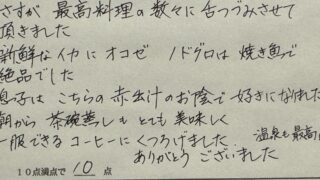 さすが 最高料理の数々に舌つづみさせて
頂きました
新鮮なイカに オコゼ ノドグロは 焼き魚で
絶品でした
息子は こちらの 赤出汁のお陰で 好きになれました
朝から 茶碗蒸しも とても 美味しく
一服できる コーヒーに くつろげました
温泉も最高
ありがとう ございました
10点満点で 10 点